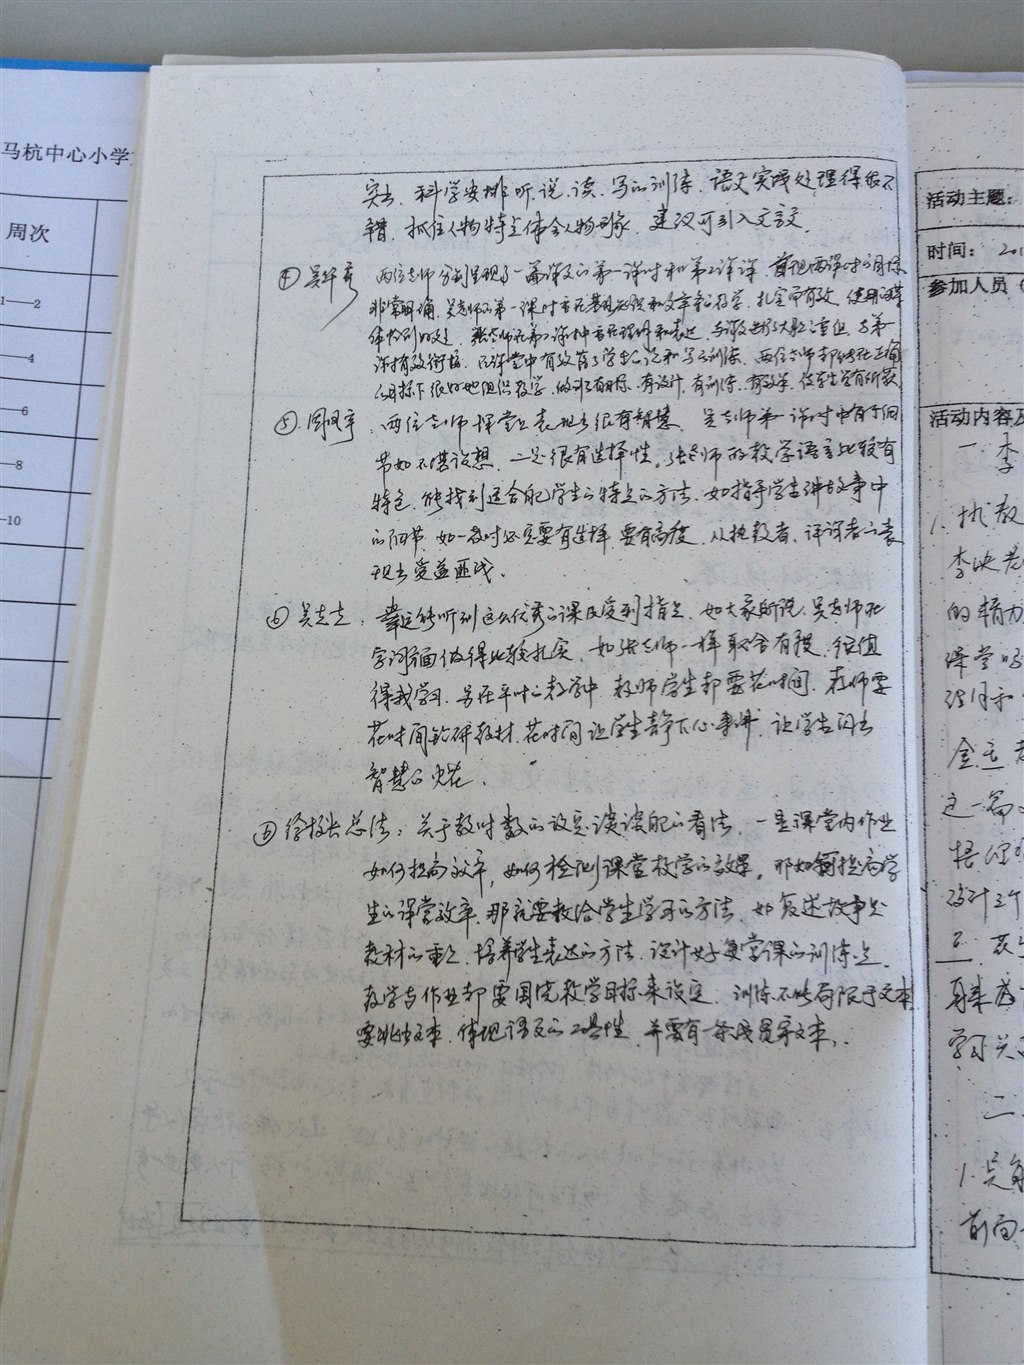 马杭中心小学
周次
1—2
—4
—6
—8
—10
突出，科学安排听、说、读、写的训练，语文实践处理得很不
错，抓住人物特点体会人物形象，建议可引入文言文。
④ 两位老师分别呈现了一篇课文的第一课时和第二课时，首先两课时的目标
非常明确，吴老师的第一课时重在基础知识和文章的教学，扎实而有效，使用的媒
体恰到好处，张老师的第二课时重在理解和表达，与课文进行大胆的重组，与第一
课有效衔接，在课堂中有效指导了学生的说和写的训练，两位老师都能在正确
的目标下很好地组织教学，做到了有目标、有设计、有训练、有效果，使学生学有所获
⑤ 周风宇，两位老师课堂上表现出很有智慧，吴老师第一课时中有个细
节如不堪设想，二是很有选择性。张老师的教学语言比较有
特色，能找到适合自己学生的特点的方法，如指导学生讲故事中
的细节，如一教时必定要有选择，要有高度，从执教者、评课者的表
现出受益匪浅。
⑥ 吴志志，幸运能听到这么优秀的课及受到指点，如大家所说，吴老师在
字词方面做得比较扎实，如张老师一样取舍有度，很值
得我学习，另在平时的教学中，教师学生都要花时间，教师要
花时间钻研教材，花时间让学生静下心来讲，让学生闪出
智慧的火花。
徐校长总结：关于教时数的设定谈谈自己的看法，一是课堂内作业
如何提高效率，如何检测课堂教学的效果。那如何提高学
生的课堂效率，那就要教给学生学习的方法，如复述故事是
教材的重点，培养学生表达的方法，设计好每堂课的训练点。
教学与作业都要围绕教学目标来设定，训练不能局限于文本
要跳出文本，体现语文的工具性，并要有一条线贯穿文本。
活动主题：
时间：201
参加人员（
活动内容及
一、李
1. 执教
李映老
的精力
课堂
金玉老
这一篇
设计三个
学习兴
二、
1. 吴
前面